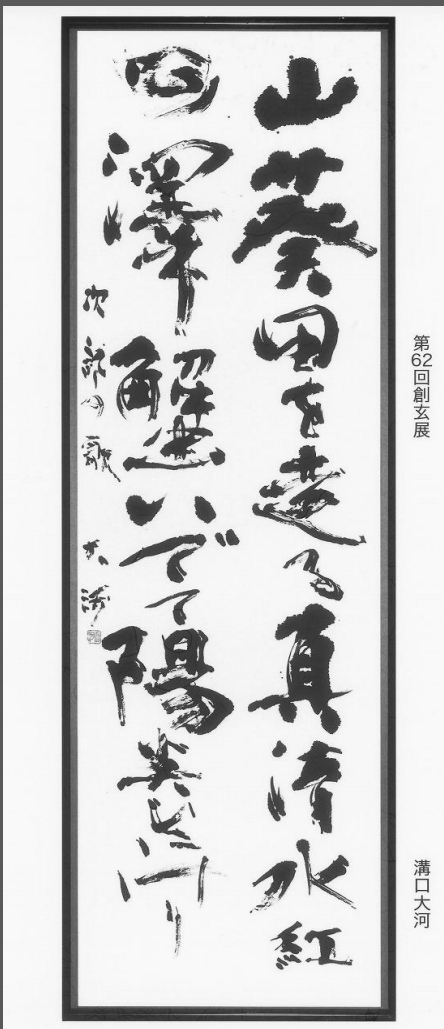 山葵田を走る真清水紅
の澤蟹いでて陽
次郎の歌 大河
第62回創玄展
溝口大河